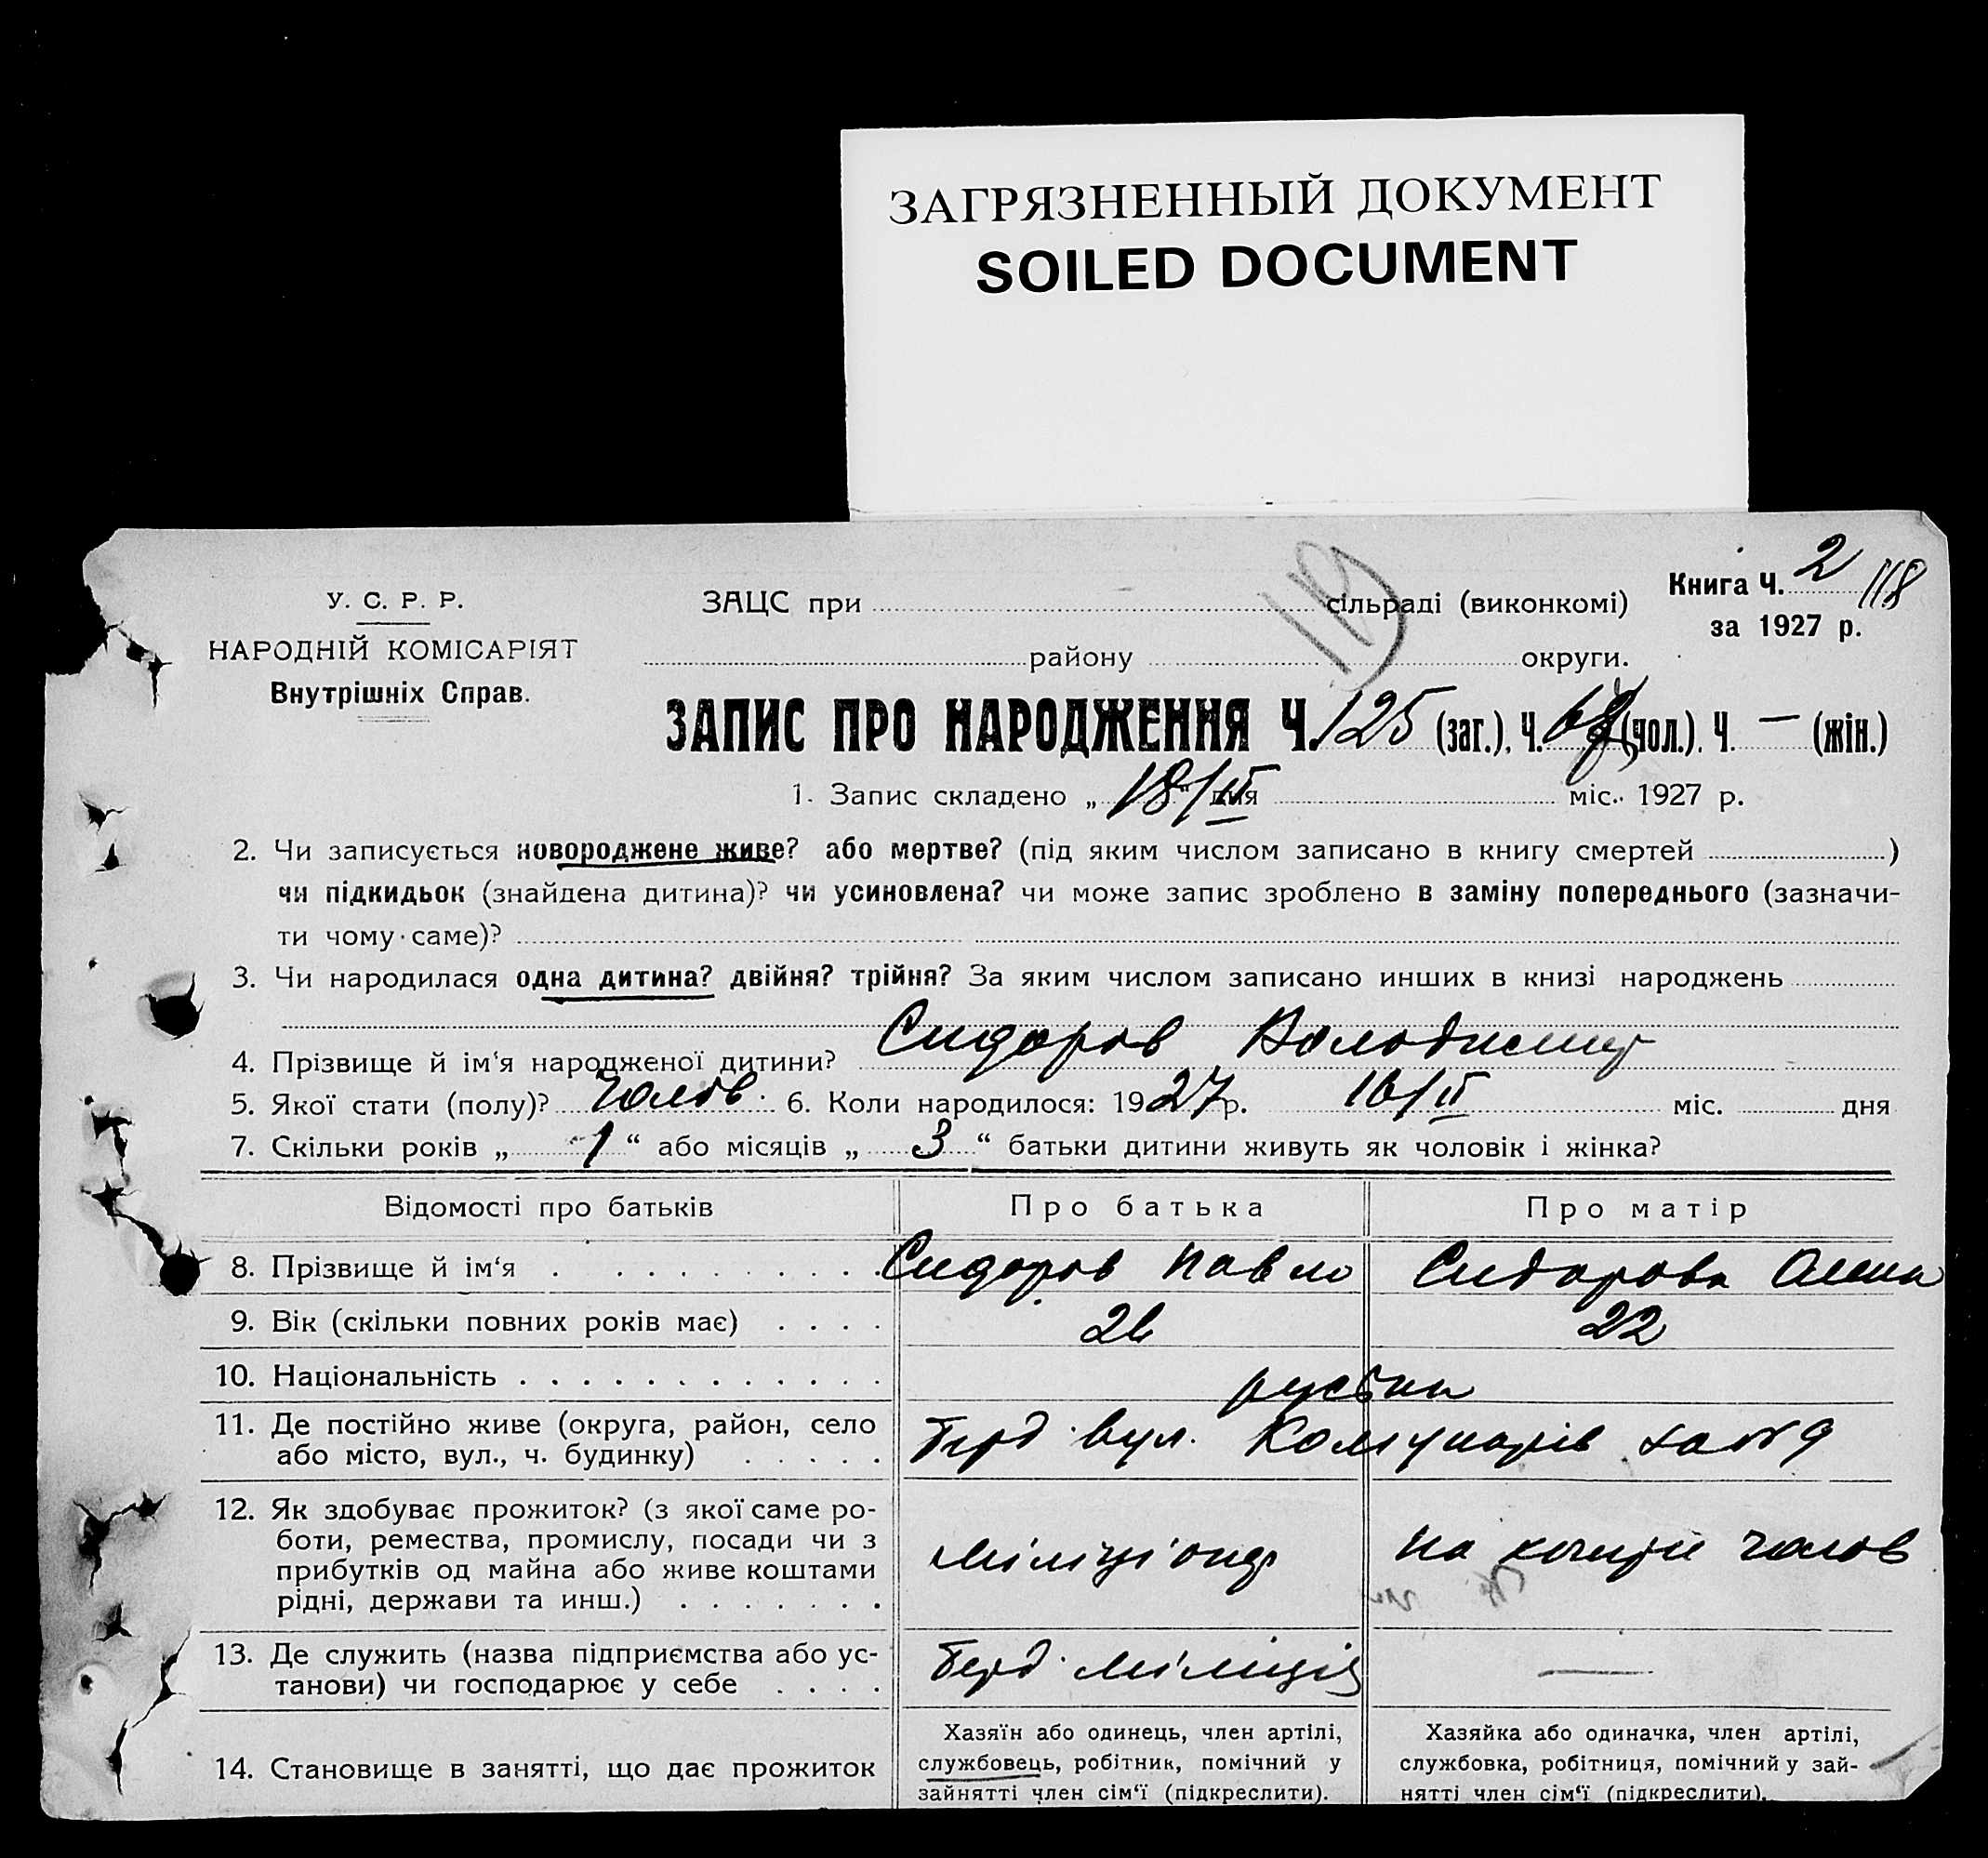 ЗАГРЯЗНЕННЫЙ ДОКУМЕНТ
SOILED DOCUMENT
У. С. Р. Р.
НАРОДНІЙ КОМІСАРІЯТ
Внутрішніх Справ.
ЗАЦС при сільраді (виконкомі)
району округи.
Книга Ч. 2 118
за 1927 р.
ЗАПИС ПРО НАРОДЖЕННЯ Ч. 125 (заг.), Ч. (чол.). Ч. — (жін.)
1. Запис складено „18/II“ дня міс. 1927 р.
2. Чи записується новороджене живе? або мертве? (під яким числом записано в книгу смертей )
чи підкидьок (знайдена дитина)? чи усиновлена? чи може запис зроблено в заміну попереднього (зазначи-
ти чому саме)?
3. Чи народилася одна дитина? двійня? трійня? За яким числом записано инших в книзі народжень
4. Прізвище й ім'я народженої дитини? Сидоров Володимир
5. Якої стати (полу)? Чолов. 6. Коли народилося: 1927 р. 16/II міс. дня
7. Скільки років „1“ або місяців „3“ батьки дитини живуть як чоловік і жінка?
Відомості про батьків Про батька Про матір
8. Прізвище й ім'я Сидоров Павло Сидорова
9. Вік (скільки повних років має) 26 22
10. Національність
11. Де постійно живе (округа, район, село
або місто, вул., ч. будинку)
вул. Комунарів 9
12. Як здобуває прожиток? (з якої саме ро-
боти, ремества, промислу, посади чи з
прибутків од майна або живе коштами
рідні, держави та инш.)
міліціонер
на кошти чолов
13. Де служить (назва підприємства або ус-
танови) чи господарює у себе
Берд. міліція
—
14. Становище в занятті, що дає прожиток
Хазяїн або одинець, член артілі,
службовець, робітник, помічний у
зайнятті член сім'ї (підкреслити).
Хазяйка або одиначка, член артілі,
службовка, робітниця, помічний у зай-
нятті член сім'ї (підкреслити).